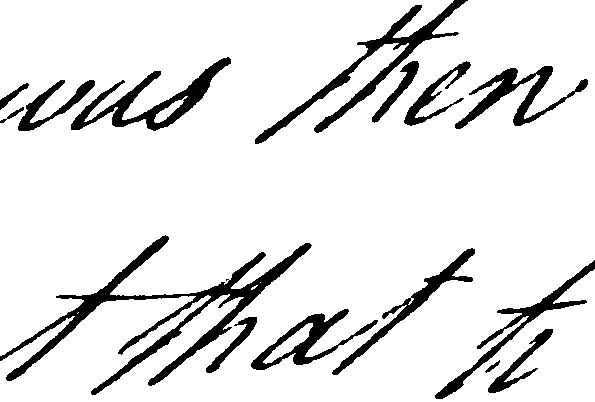 was then
t that ti